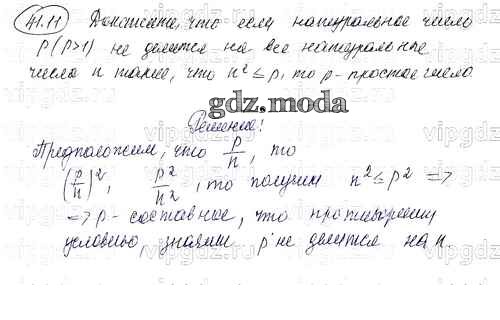 41.11 Докажите, что если натуральное число
p (p>1) не делится на все натуральные
числа n такие, что n² ≤ p, то p - простое число.
gdz.moda
Решение!
Предположим, что p/n, то
(p/n)², p²/n², то получим n² ≤ p² =>
=> p - составное, что противоречит
условию, значит p не делится на n.